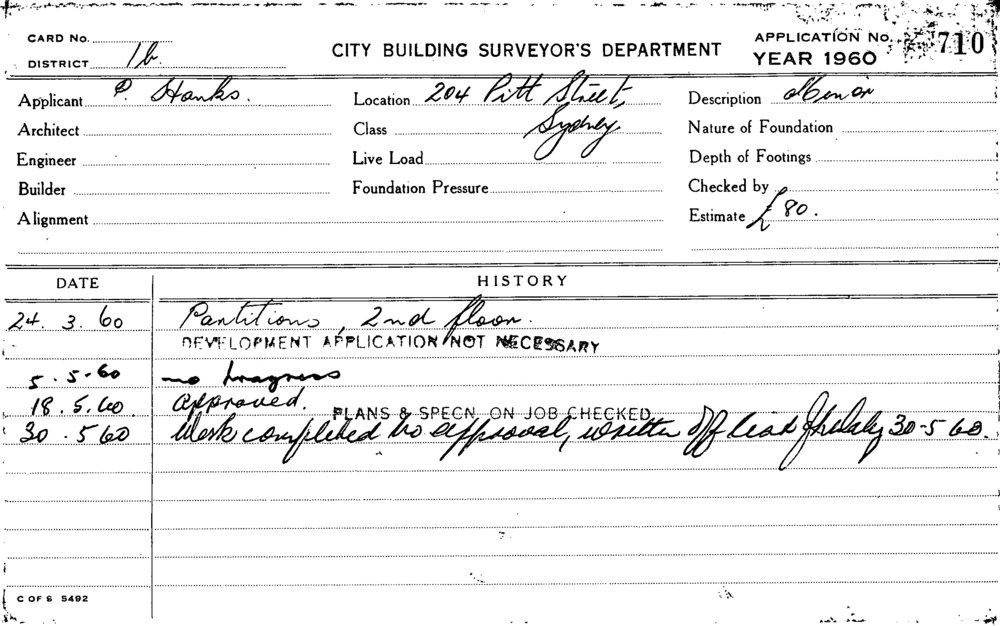 CARD No.
DISTRICT 1b.
CITY BUILDING SURVEYOR'S DEPARTMENT
APPLICATION No. 710
YEAR 1960
Applicant P. Hanks. Location 204 Pitt Street, Description Minor
Architect Class Sydney Nature of Foundation
Engineer Live Load Depth of Footings
Builder Foundation Pressure Checked by
Alignment Estimate £80.
DATE HISTORY
24. 3. 60 Partitions, 2nd floor.
DEVELOPMENT APPLICATION NOT NECESSARY
5. 5-60 no progress
18. 5. 60 approved.
PLANS & SPECN. ON JOB CHECKED
30. 5 60 Work completed to approval, written off 30-5 60.
C OF S 5492